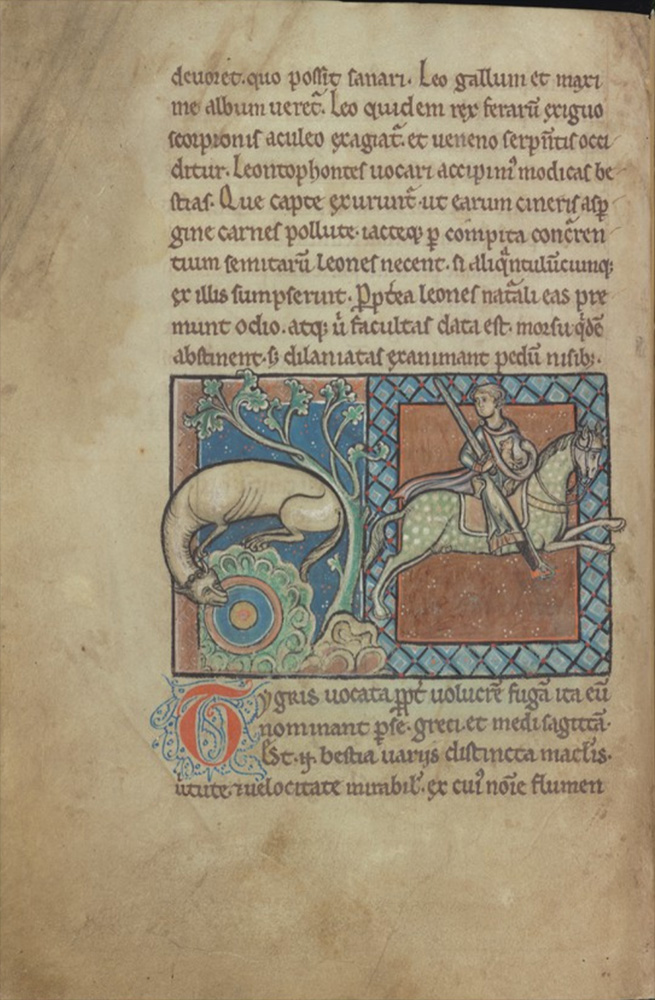 deuoret. quo possit sanari. Leo gallum et maxi
me album ueret̄. Leo quidem rex ferarū exiguo
scorpionis aculeo exagiat̄. et ueneno serpn̄tis occi
ditur. Leontophontes uocari accipim᾽ modicas be
stias. Que capte exurunt̄. ut earum cineris asp
gine carnes pollute. iacteq; p̱ compita concren
tium semitarū leones necent. si aliqn̄tulūcumq;
ex illis sumpserint. Ppt̄ea leones natali eas pre
munt odio. atq; ū facultas data est. morsu q̇dē
abstinent. s; dilaniatas exanimant pedū nisib;.
Tygris uocata ppt̄ uolucrē fugā ita eū
nominant pse. greci. et medi sagittā.
Est. n. bestia uarijs distincta maclis.
uirtute. ⁊ uelocitate mirabil᾽. ex cui᾽ noīe flumen